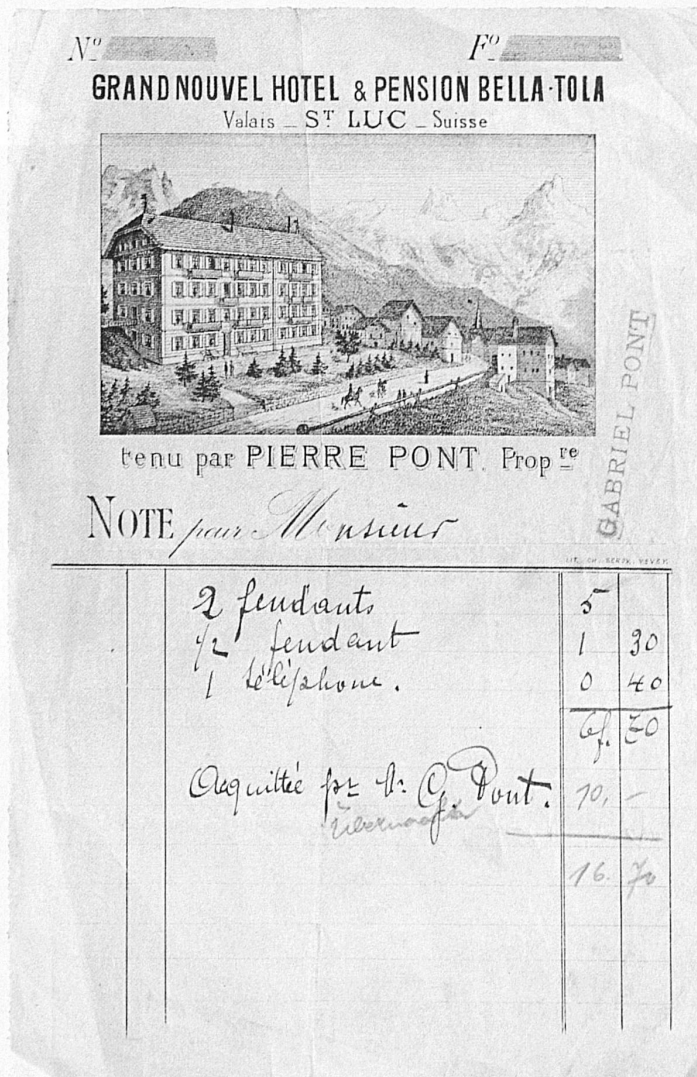 Nº Fº
GRAND NOUVEL HOTEL & PENSION BELLA-TOLA
Valais _ ST LUC _ Suisse
tenu par PIERRE PONT. Propre
GABRIEL PONT
NOTE pour Monsieur
2 fendants 5
1/2 fendant 1 30
1 téléphone. 0 40
6f. 70
Acquittée pr G. Pont. 10, -
16. 70